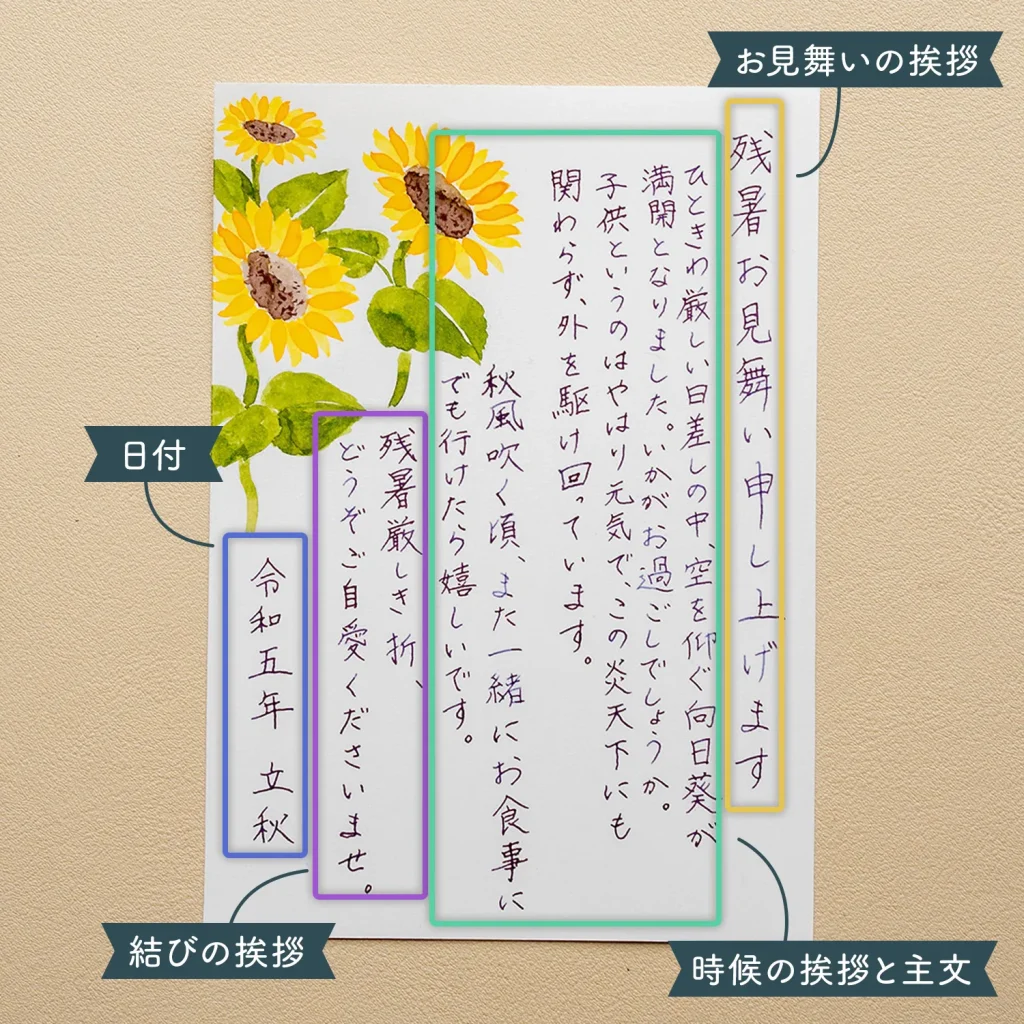 お見舞いの挨拶
残暑お見舞い申し上げます
ひときわ厳しい日差しの中、空を仰ぐ向日葵が
満開となりました。いかがお過ごしでしょうか。
子供というのはやはり元気で、この炎天下にも
関わらず、外を駆け回っています。
秋風吹く頃、また一緒にお食事に
でも行けたら嬉しいです。
残暑厳しき折、
どうぞご自愛くださいませ。
令和五年 立秋
日付
結びの挨拶
時候の挨拶と主文